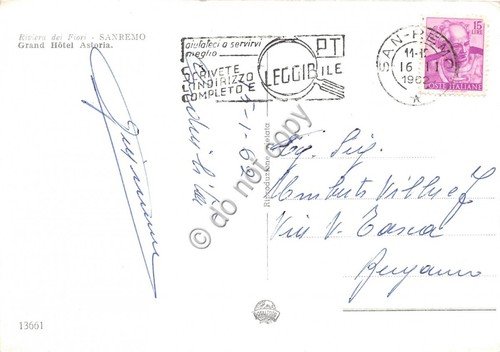 Riviera dei Fiori - SANREMO
Grand Hôtel Astoria.
aiutateci a servirvi
meglio
SCRIVETE
L'INDIRIZZO
COMPLETO E
LEGGIBILE
PT
SAN-REMO
11-12
1962
15
LIRE
POSTE ITALIANE
Cordialità
5-1-62
Riproduzione vietata
© do not copy
Umberto
Via V. Tasca
Bergamo
13661